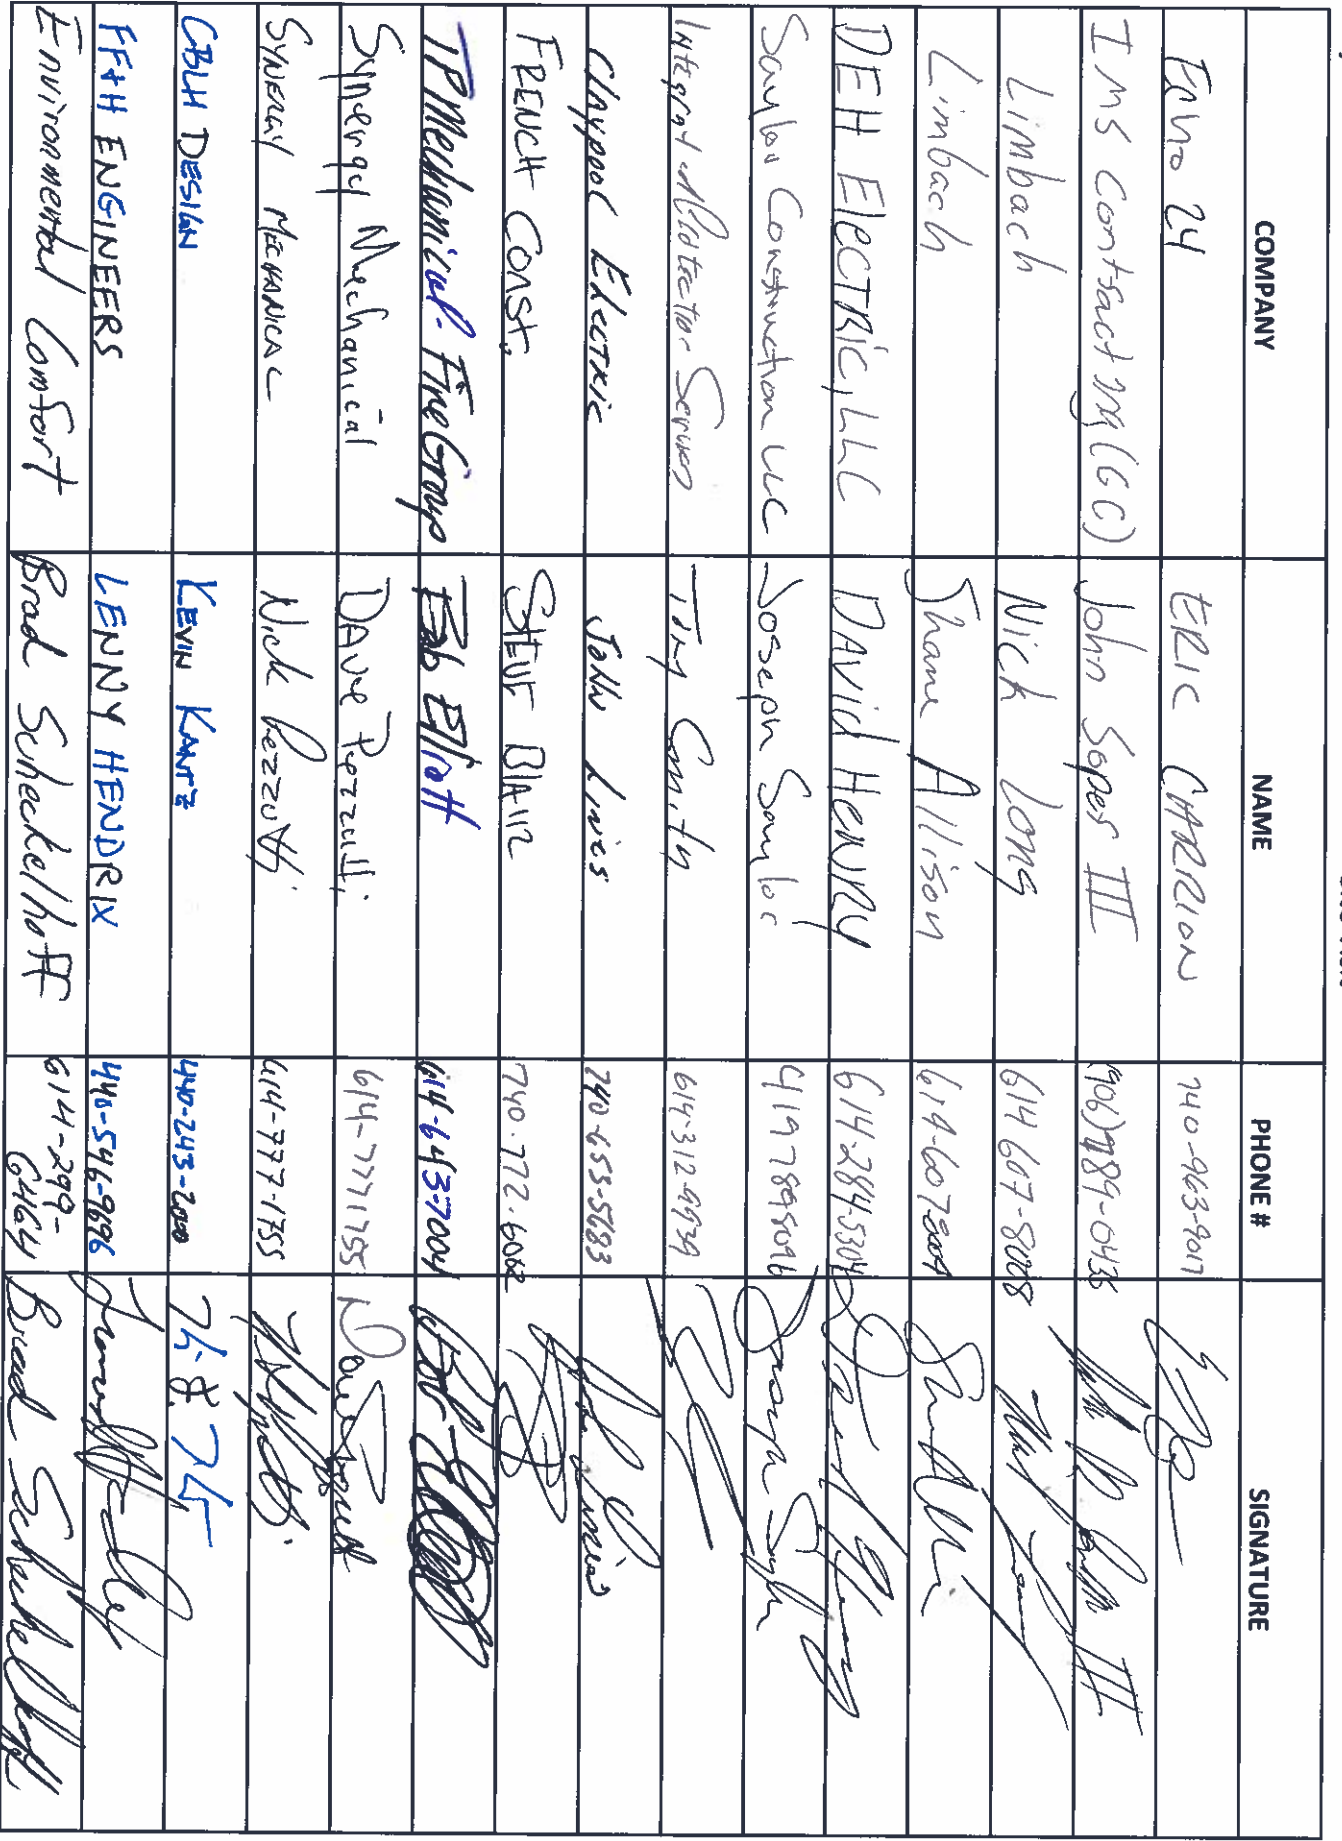 COMPANY NAME PHONE # SIGNATURE
Echo 24 ERIC CARRION 740-963-9017
IMS Contracting (GC) John Sopes III (906)989-0436
Limbach Nick Long 614 607-8008
Limbach Shane Allison 614-607
DEH ELECTRIC, LLC DAVID HENRY 614-284-5304
Saylor Construction LLC Joseph Saylor 419 789 8096 Joseph Saylor
Integrated Protection Services Tony Smith 614-312-9939
Claypool Electric John Lines 740-655-5683
FRENCH CONST. STEVE BLAIR 740-772-6062
TP Mechanical - Fire Group Bob Elliott 614-643-7004 Bob Elliott
Synergy Mechanical DAVE Pezzutti 614-777 1755
SYNERGY MECHANICAL Nick Pezzutti 614-777-1755
CBLH DESIGN KEVIN KANTZ 440-243-2000
FF+H ENGINEERS LENNY HENDRIX 440-546-9696
Environmental Comfort Brad Scheckelhoff 614-299- Brad Scheckelhoff
6464